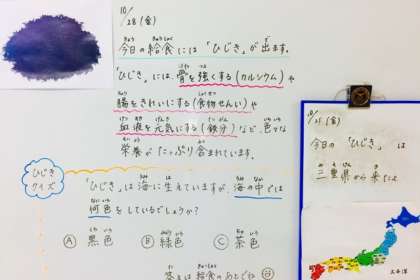 10/28(金)
今日の給食には「ひじき」が出ます。
「ひじき」には、骨を強くする(カルシウム)や
腸をきれいにする(食物せんい)や
血液を元気にする(鉄分)など、色々な
栄養がたっぷり含まれています。
ひじき
クイズ
「ひじき」は海に生えていますが、海の中では
何色をしているでしょうか?
Ⓐ 黒色 Ⓑ 緑色 Ⓒ 茶色
答えは給食のあとでね
(金)
今日の「ひじき」は
三重県から来たよ